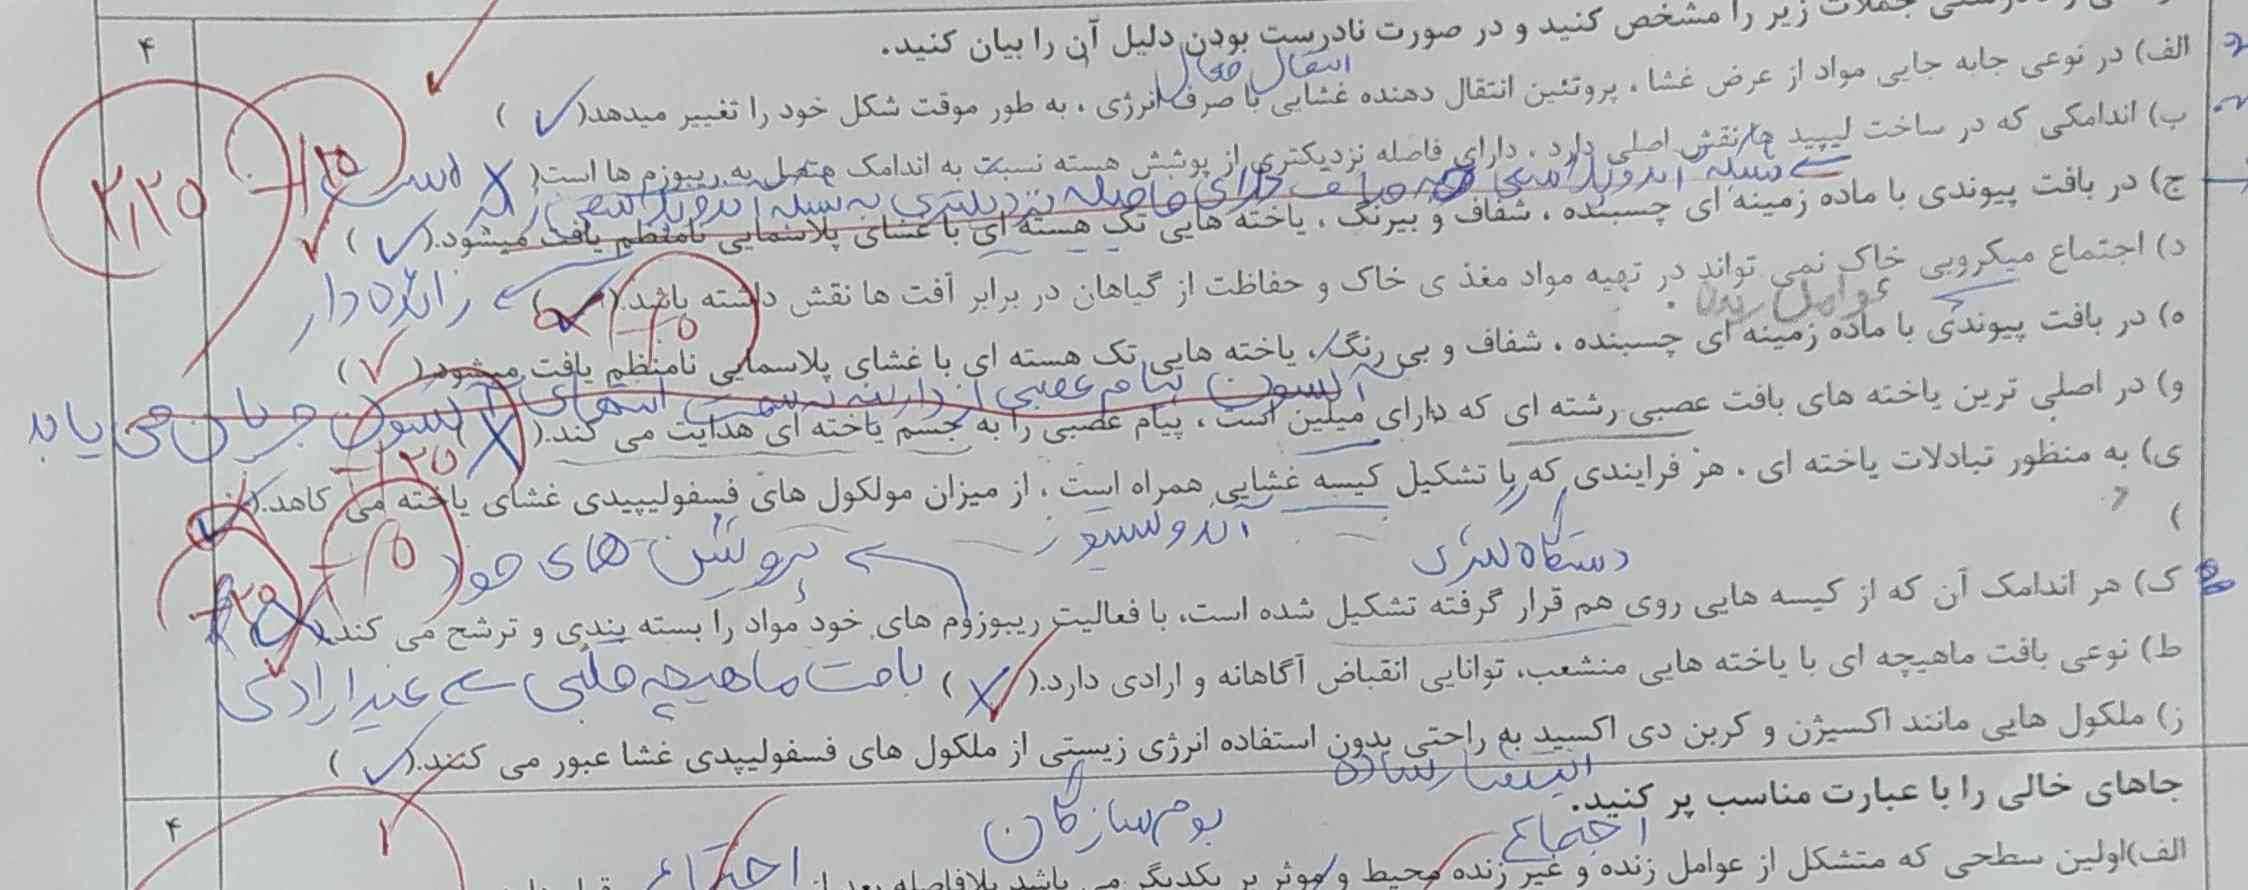 جملات زیر را مشخص کنید و در صورت نادرست بودن دلیل آن را بیان کنید.
۴
انتقال فعال
الف) در نوعی جابه جایی مواد از عرض غشا ، پروتئین انتقال دهنده غشایی با صرف انرژی ، به طور موقت شکل خود را تغییر میدهد( ✓ )
ب) اندامکی که در ساخت لیپید ها نقش اصلی دارد ، دارای فاصله نزدیکتری از پوشش هسته نسبت به اندامک متصل به ریبوزم ها است( X
۲,۲۵
ج) در بافت پیوندی با ماده زمینه ای چسبنده ، شفاف و بیرنگ ، یاخته هایی تک هسته ای با غشای پلاسمایی نامنظم یافت میشود.( ✓ )
د) اجتماع میکروبی خاک نمی تواند در تهیه مواد مغذ ی خاک و حفاظت از گیاهان در برابر آفت ها نقش داشته باشد.( )
زائده دار
ه) در بافت پیوندی با ماده زمینه ای چسبنده ، شفاف و بی رنگ ، یاخته هایی تک هسته ای با غشای پلاسمایی نامنظم یافت میشود( ✓ )
آکسون پیام عصبی از دارینه به سمت انتهای آکسون جریان می یابد
و) در اصلی ترین یاخته های بافت عصبی رشته ای که دارای میلین است ، پیام عصبی را به جسم یاخته ای هدایت می کند.( X )
ی) به منظور تبادلات یاخته ای ، هر فرایندی که با تشکیل کیسه غشایی همراه است ، از میزان مولکول های فسفولیپیدی غشای یاخته می کاهد.(
)
دستگاه گلژی
پروتئین های خود
ک) هر اندامک آن که از کیسه هایی روی هم قرار گرفته تشکیل شده است، با فعالیت ریبوزوم های خود مواد را بسته بندی و ترشح می کند.(
ط) نوعی بافت ماهیچه ای با یاخته هایی منشعب، توانایی انقباض آگاهانه و ارادی دارد.( X ) بافت ماهیچه قلبی غیر ارادی
ز) ملکول هایی مانند اکسیژن و کربن دی اکسید به راحتی بدون استفاده انرژی زیستی از ملکول های فسفولیپدی غشا عبور می کنند.( ✓ )
انتشار ساده
جاهای خالی را با عبارت مناسب پر کنید.
۴
اجتماع
بوم سازگان
الف)اولین سطحی که متشکل از عوامل زنده و غیر زنده محیط و موثر بر یکدیگر می باشد بلافاصله بعد از اجتماع